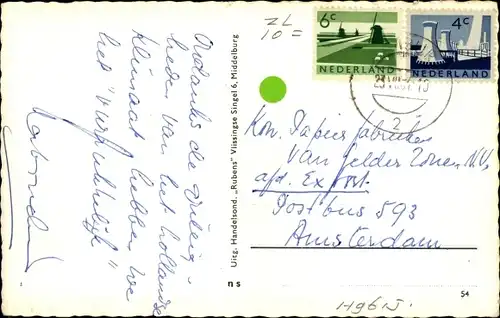 Ondanks de grillig-
heden van het hollandse
klimaat hebben we
het "verfrukkelijk"
ZL
10=
6c
NEDERLAND
4c
NEDERLAND
Kon. Papier fabrieken
van Gelder Zonen N.V.
afd. Export.
Postbus 593
Amsterdam
Uitg. Handelsond. „Rubens" Vlissingse Singel 6, Middelburg
n s
54